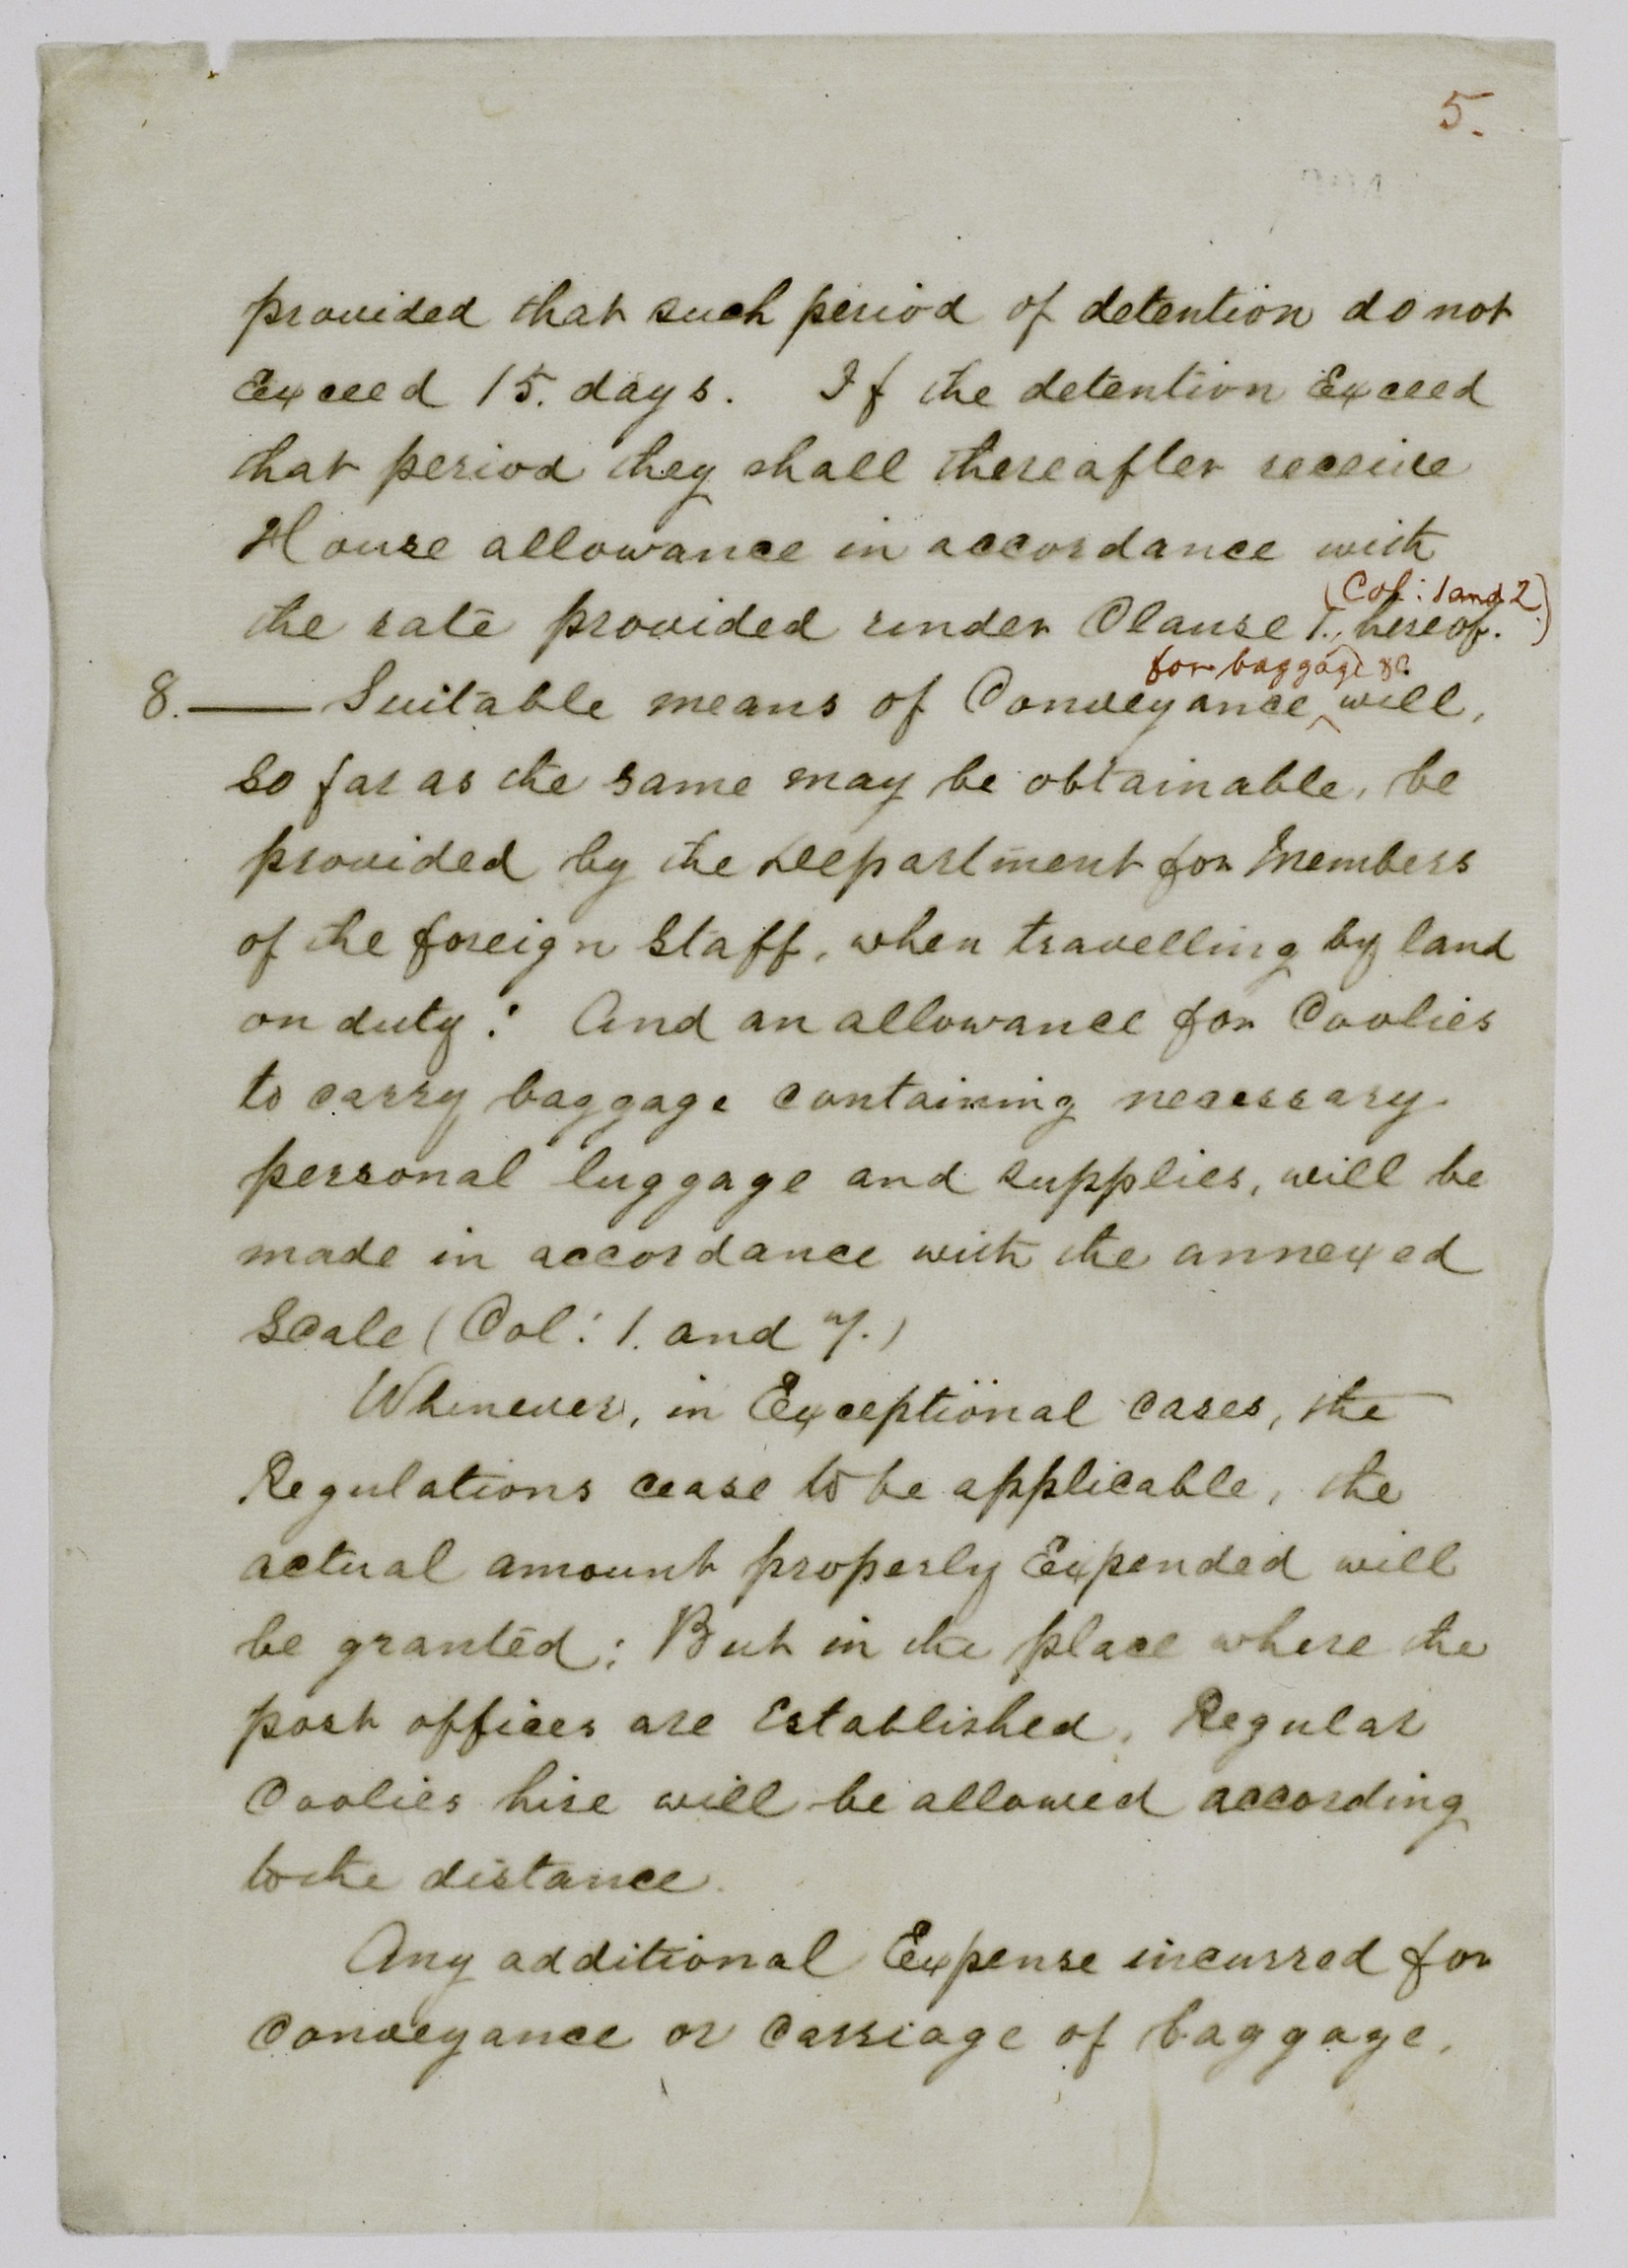 5.
provided that such period of detention do not
Exceed 15. days. If the detention Exceed
that period they shall thereafter receive
House allowance in accordance with
(Col: 1 and 2)
the rate provided under Clause 1., hereof.
for baggage &c.
8. — Suitable means of Conveyance will,
So far as the same may be obtainable, be
provided by the Department for Members
of the foreign Staff, when travelling by land
on duty: And an allowance for Coolies
to carry baggage containing necessary
personal luggage and supplies, will be
made in accordance with the annexed
Scale (Col: 1. and 7.)
Whenever, in Exceptional cases, the
Regulations cease to be applicable, the
actual amount properly Expended will
be granted; But in the place where the
post offices are Established, Regular
Coolies hire will be allowed according
to the distance.
Any additional Expense incurred for
Conveyance or Carriage of baggage,